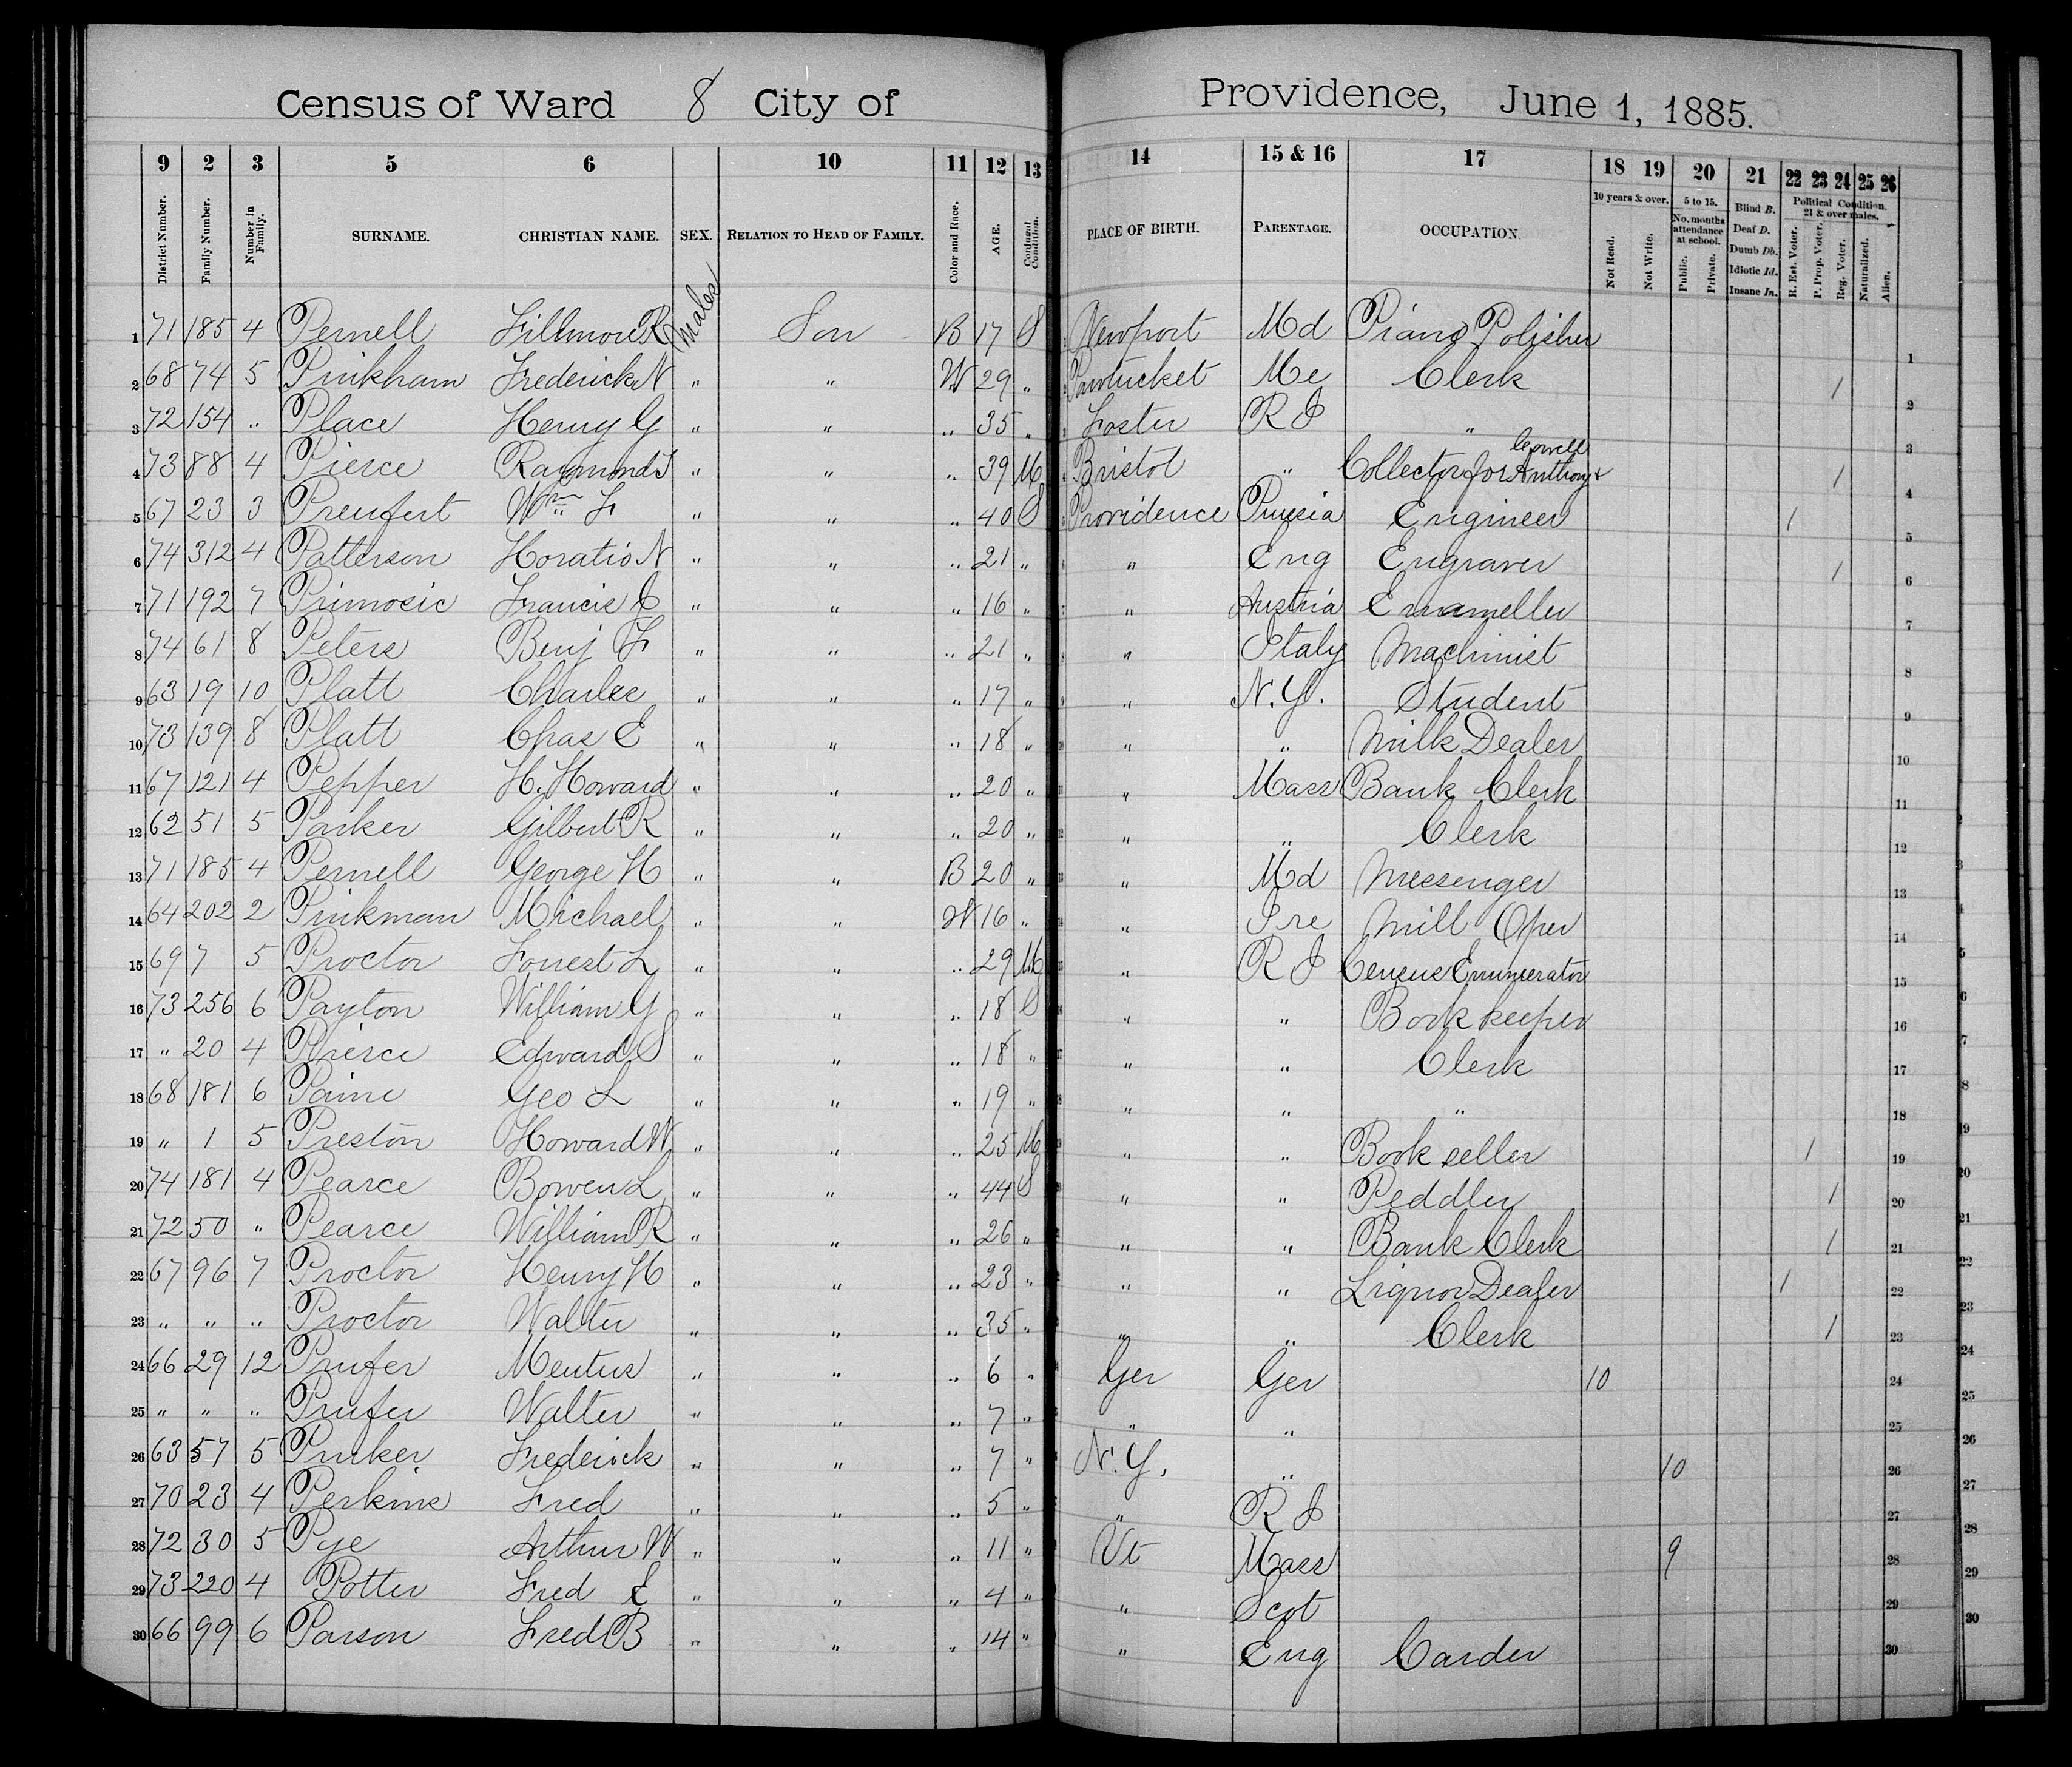 Census of Ward 8 City of Providence, June 1, 1885.
9 2 3 5 6 10 11 12 13 14 15 & 16 17 18 19 20 21 22 23 24 25 26
District Number. Family Number. Number in Family. SURNAME. CHRISTIAN NAME. SEX. RELATION TO HEAD OF FAMILY. Color and Race. AGE. Conjugal Condition. PLACE OF BIRTH. PARENTAGE. OCCUPATION. 10 years & over. Not Read. Not Write. 5 to 15. No. months attendance at school. Public. Private. Blind B. Deaf D. Dumb Db. Idiotic Id. Insane In. Political Condition. 21 & over males. R. Est. Voter. P. Prop. Voter. Reg. Voter. Naturalized. Alien.
1 71 185 4 Pernell Fillmore R Males Son B 17 S Newport Md Piano Polisher 1
2 68 74 5 Pinkham Frederick N " " W 29 " Pawtucket Me Clerk / 2
3 72 154 " Place Henry G " " " 35 " Foster R I " 3
4 73 88 4 Pierce Raymond T " " " 39 M Bristol " Collector for Cowell Anthony + / 4
5 67 23 3 Preufert Wm F " " " 40 S Providence Prussia Engineer / 5
6 74 312 4 Patterson Horatio N " " " 21 " " Eng Engraver / 6
7 71 192 7 Primosic Francis J " " " 16 " " Austria Enameller 7
8 74 61 8 Peters Benj F " " " 21 " " Italy Machinist 8
9 63 19 10 Platt Charles " " " 17 " " N.Y. Student 9
10 73 139 8 Platt Chas E " " " 18 " " " Milk Dealer 10
11 67 121 4 Pepper H. Howard " " " 20 " " Mass Bank Clerk 11
12 62 51 5 Parker Gilbert R " " " 20 " " " Clerk 12
13 71 185 4 Pernell George H " " B 20 " " Md Messenger 13
14 64 202 2 Pinkman Michael " " W 16 " " Ire Mill Oper 14
15 69 7 5 Proctor Forrest L " " " 29 M " R I Census Enumerator 15
16 73 256 6 Payton William G " " " 18 S " " Book keeper 16
17 " 20 4 Pierce Edward S " " " 18 " " " Clerk 17
18 68 181 6 Paine Geo L " " " 19 " " " " 18
19 " 1 5 Preston Howard W " " " 25 M " " Book seller / 19
20 74 181 4 Pearce Bowen L " " " 44 S " " Peddler / 20
21 72 50 " Pearce William R " " " 26 " " " Bank Clerk / 21
22 67 96 7 Proctor Henry H " " " 23 " " " Liquor Dealer / 22
23 " " " Proctor Walter " " " 35 " " " Clerk / 23
24 66 29 12 Prufer " " " 6 " Ger Ger 10 24
25 " " " Prufer Walter " " " 7 " " " 25
26 63 57 5 Frederick " " " 7 " N.Y. " 10 26
27 70 23 4 Perkins Fred " " " 5 " " R I 27
28 72 30 5 Pye Arthur W " " " 11 " Vt Mass 9 28
29 73 220 4 Potter Fred E " " " 4 " " Scot 29
30 66 99 6 Parson Fred B " " " 14 " " Eng Carder 30